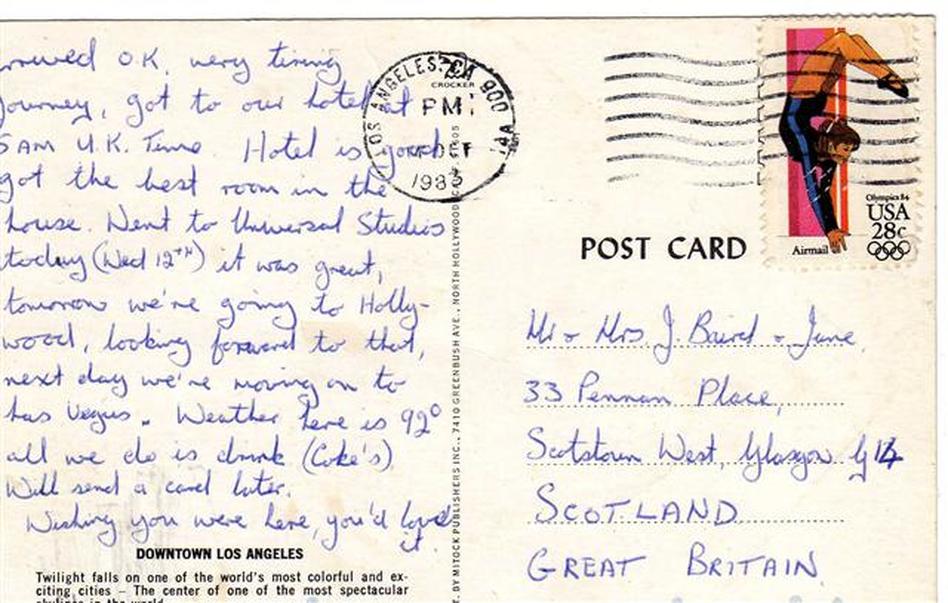 arrived O.K. very tiring
journey, got to our hotel at
5AM U.K. Time. Hotel is good
got the best room in the
house. Went to Universal Studios
today (Wed 12TH) it was great,
tomorrow we're going to Holly-
wood, looking forward to that,
next day we're moving on to
Las Vegas. Weather here is 92°
all we do is drink (Coke's)
Will send a card later.
Wishing you were here, you'd love
it.
DOWNTOWN LOS ANGELES
Twilight falls on one of the world's most colorful and ex-
citing cities – The center of one of the most spectacular
skylines in the world
BY MITOCK PUBLISHERS INC., 7410 GREENBUSH AVE., NORTH HOLLYWOOD
LOS ANGELES, CA 900
CROCKER
PM
OCT
1983
14A
Olympics 84
USA
28c
Airmail
POST CARD
Mr & Mrs J. Baird & June
33 Pennan Place,
Scotstoun West, Glasgow G14
SCOTLAND
GREAT BRITAIN